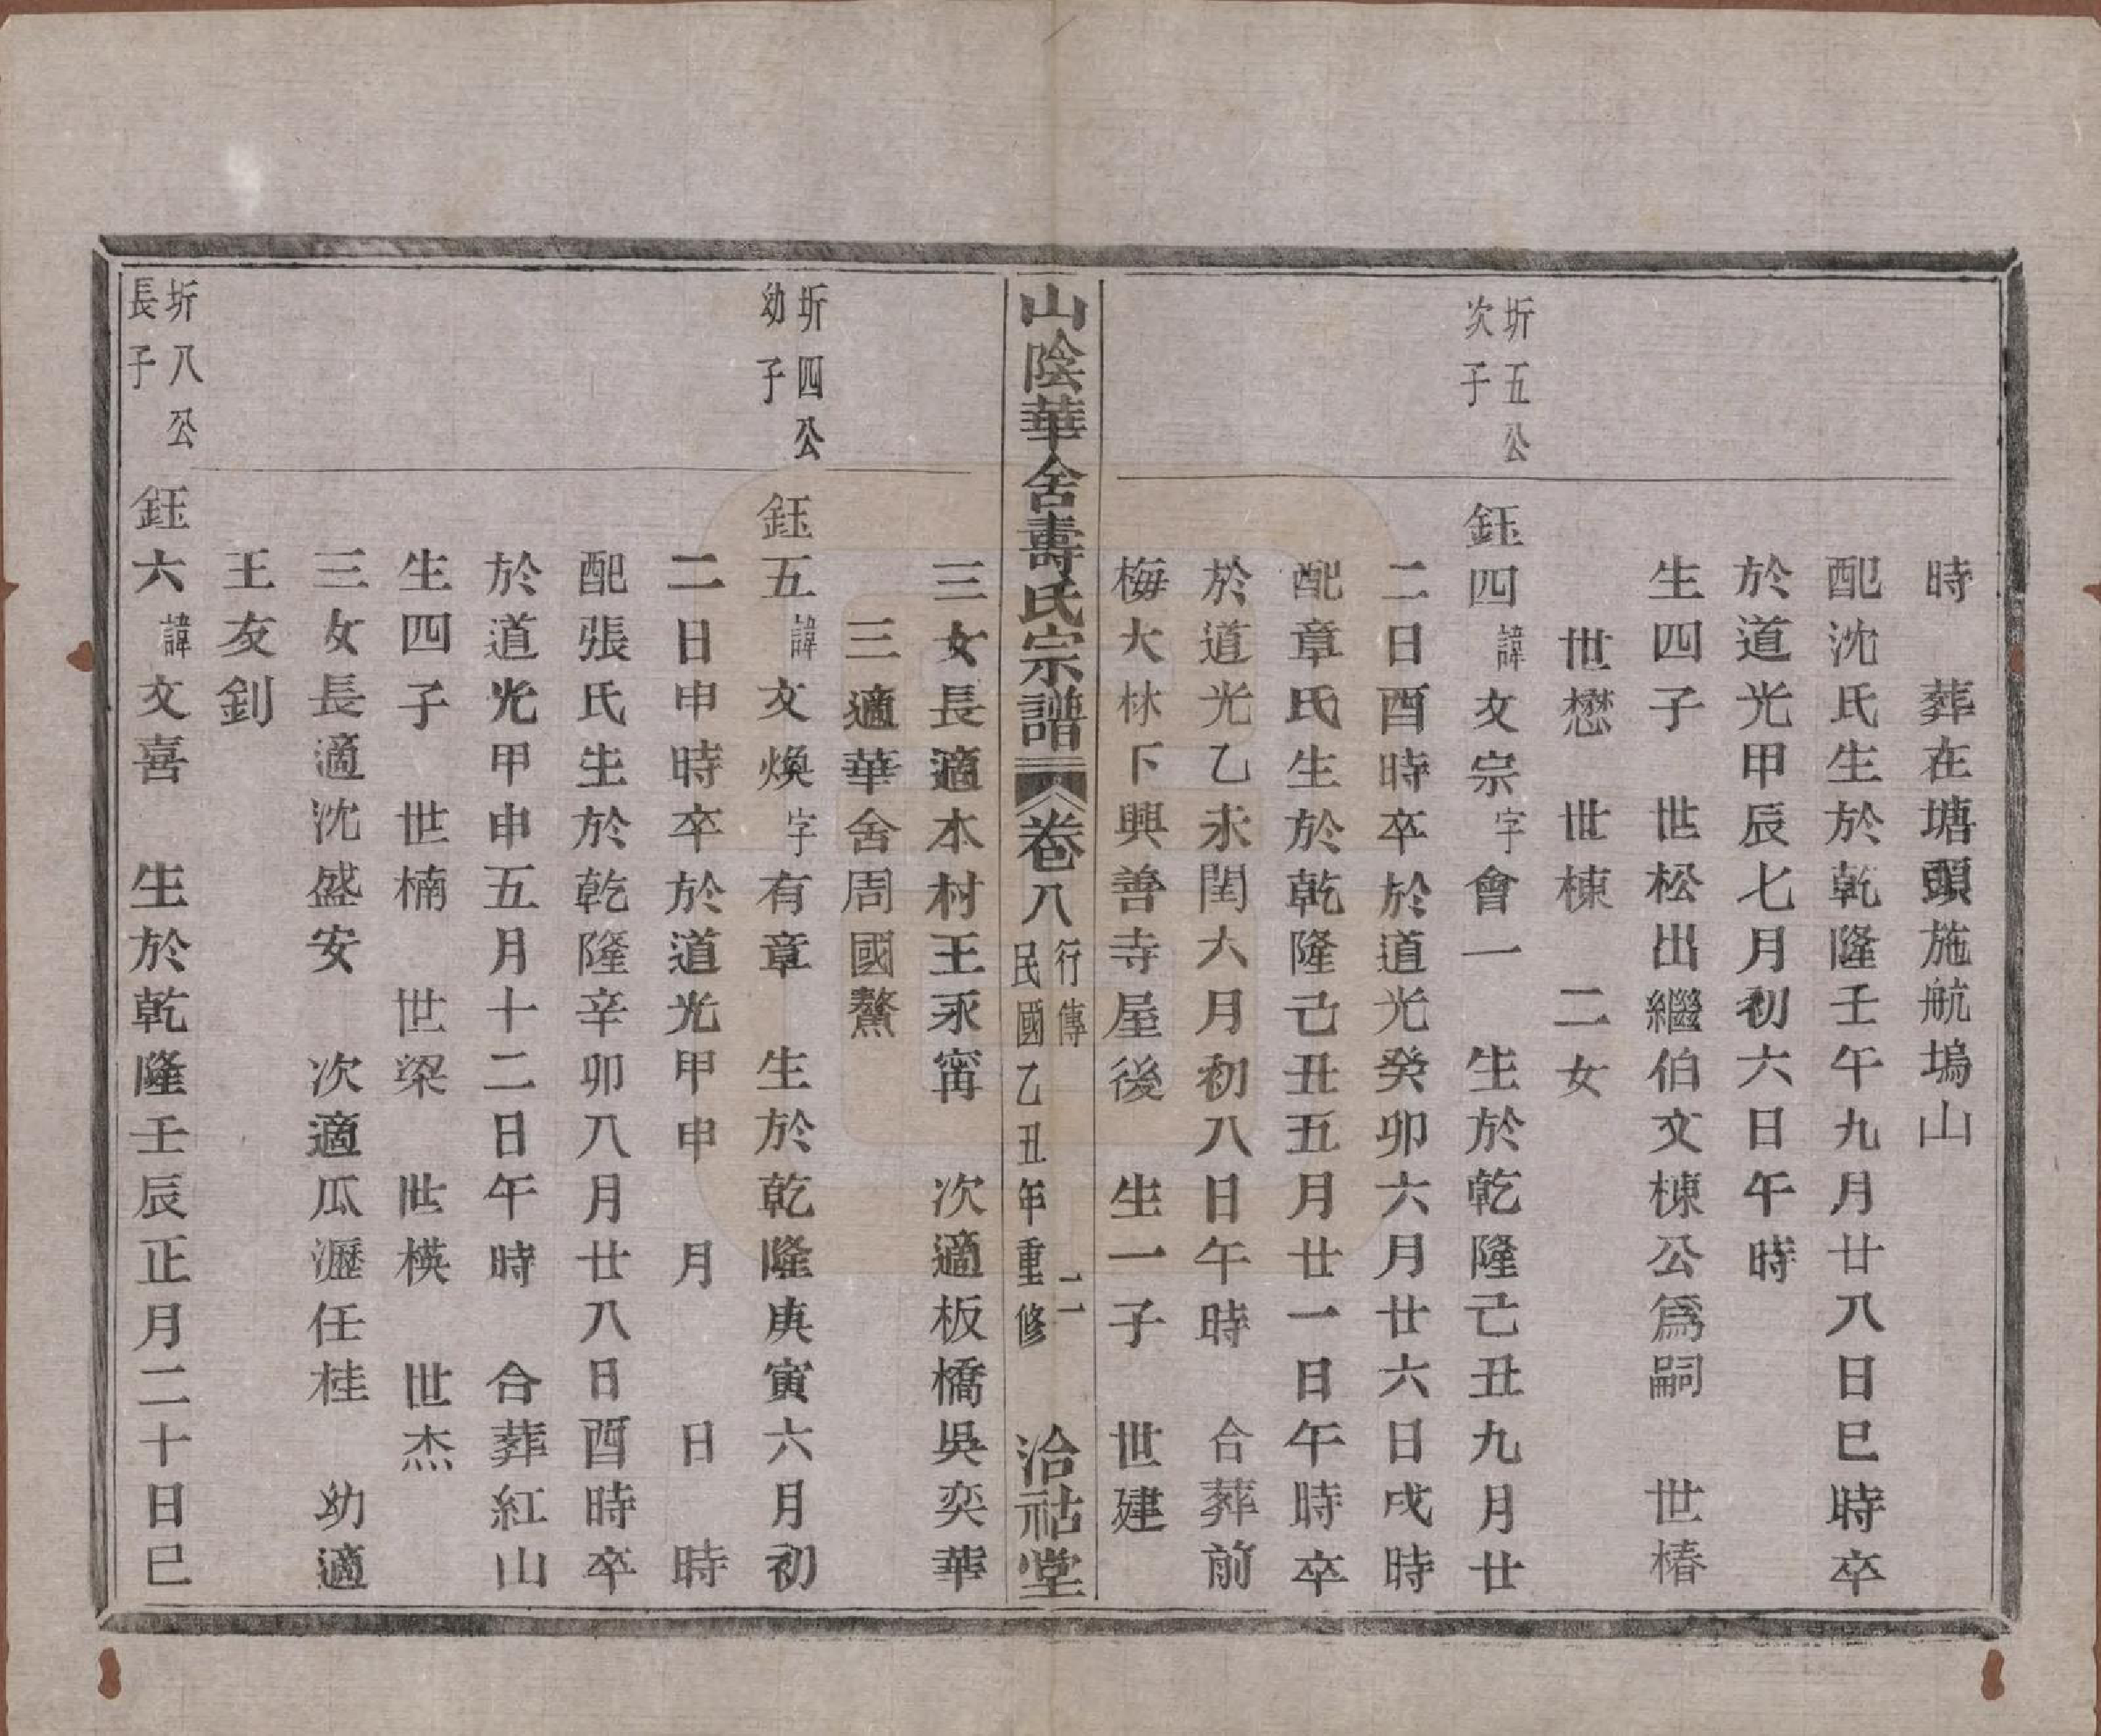 時　葬在塘頭施航塢山
配沈氏生於乾隆壬午九月廿八日巳時卒
於道光甲辰七月初六日午時
生四子　世松出繼伯文棟公爲嗣　世椿
世懋　世棟　二女
圻五公
次子
鈺四諱文宗字會一　生於乾隆己丑九月廿
二日酉時卒於道光癸卯六月廿六日戌時
配章氏生於乾隆己丑五月廿一日午時卒
於道光乙未閏六月初八日午時　合葬前
梅大林下興善寺屋後　生一子　世建
山陰華舍壽氏宗譜
卷八
行傳
民國乙丑年重修
二一
洽祜堂
三女長適本村王永甯　次適板橋吳奕華
三適華舍周國鰲
圻四公
幼子
鈺五諱文煥字有章　生於乾隆庚寅六月初
二日申時卒於道光甲申　月　日　時
配張氏生於乾隆辛卯八月廿八日酉時卒
於道光甲申五月十二日午時　合葬紅山
生四子　世楠　世梁　世橫　世杰
三女長適沈盛安　次適瓜瀝任桂　幼適
王友釗
圻八公
長子
鈺六諱文喜　生於乾隆壬辰正月二十日巳